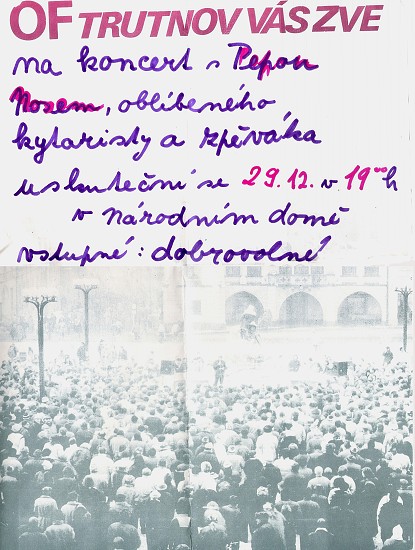 OF TRUTNOV VÁS ZVE
na koncert s Pepou
Nosem, oblíbeného
kytaristy a zpěváka
uskuteční se 29.12. v 19⁰⁰h
v národním domě
vstupné: dobrovolné